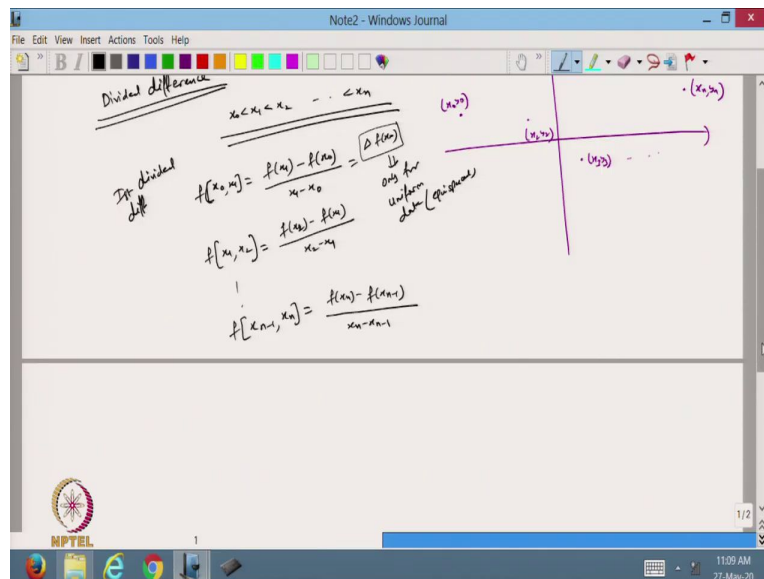 Note2 - Windows Journal
File Edit View Insert Actions Tools Help
B I
Divided difference
x₀ < x₁ < x₂ - - < xₙ
Ist divided diff
f[x₀, x₁] = f(x₁) - f(x₀) / x₁ - x₀ = Δ f(x₀)
⇓
only for
uniform
data (equispaced)
f[x₁, x₂] = f(x₂) - f(x₁) / x₂ - x₁
f[xₙ₋₁, xₙ] = f(xₙ) - f(xₙ₋₁) / xₙ - xₙ₋₁
(x₀,y₀)
(x₂,y₂)
(x₃,y₃) - - - -
(xₙ,yₙ)
NPTEL
1
1/2
11:09 AM
27-May-20